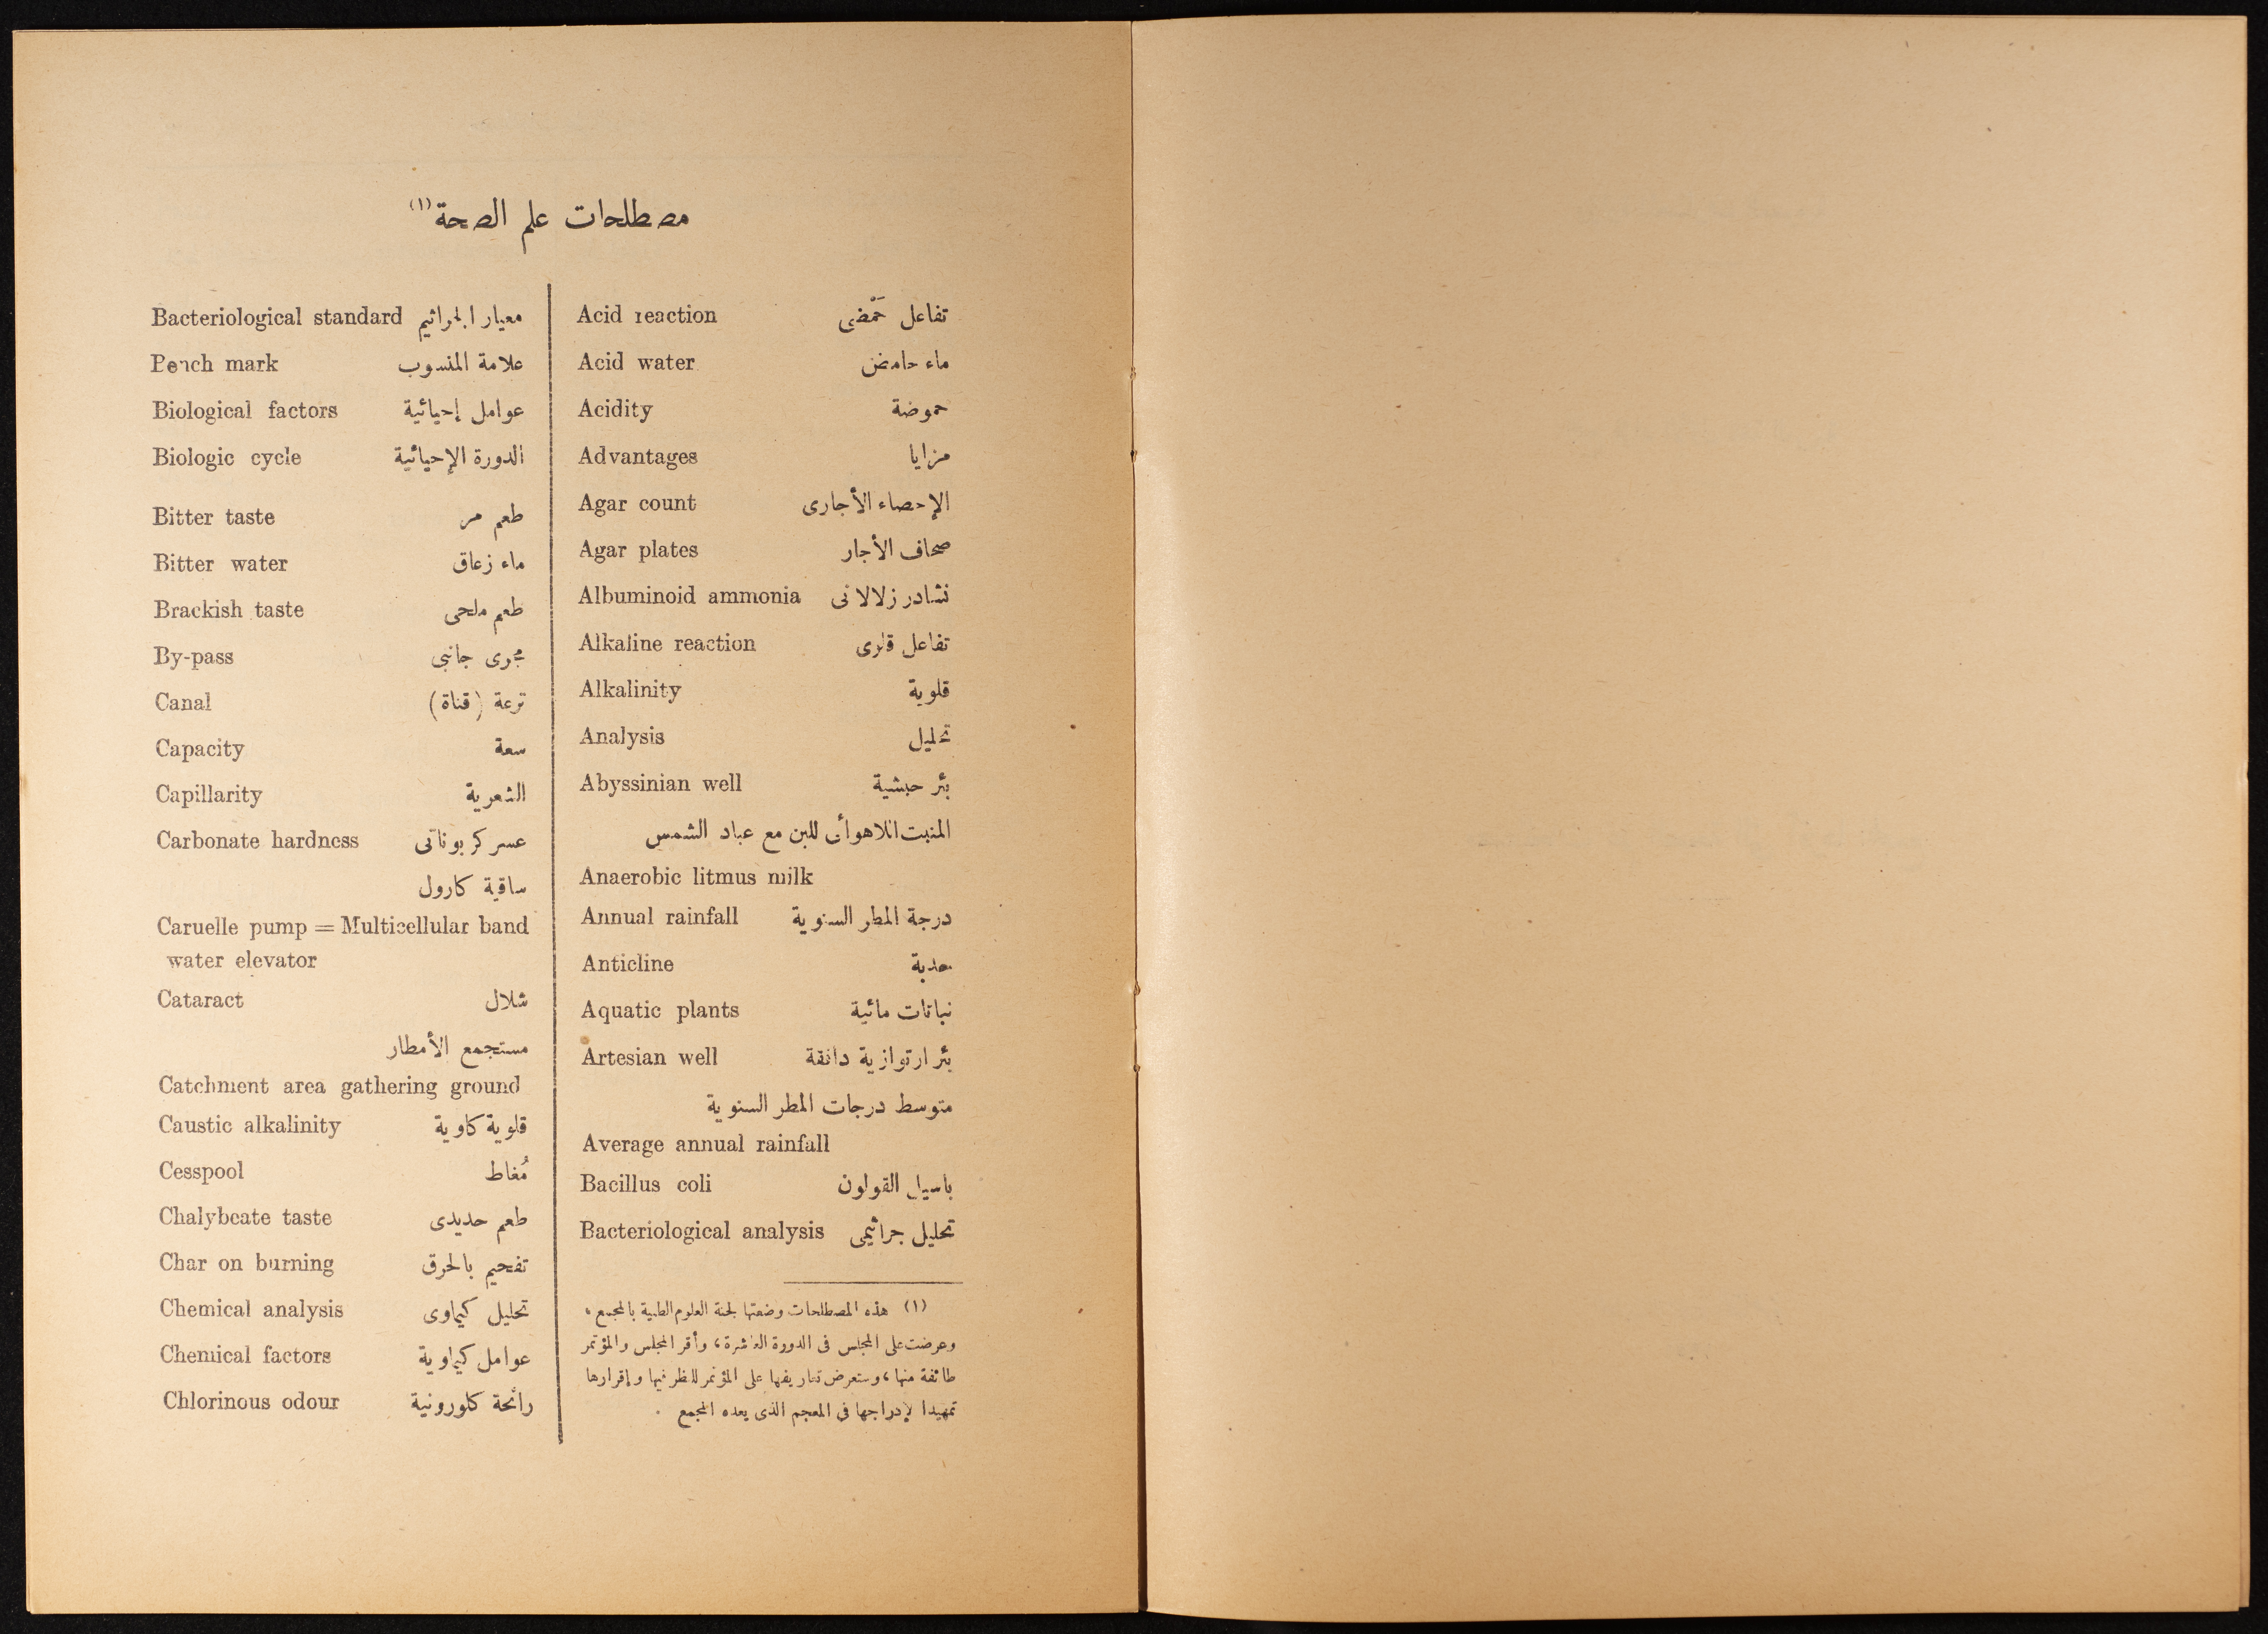 مصطلحات علم الصحة (١)
Acid reaction تفاعل حَمْضى
Acid water ماء حامض
Acidity حموضة
Advantages مزايا
Agar count الإحصاء الأجارى
Agar plates صحاف الأجار
Albuminoid ammonia نشادر زلالانى
Alkaline reaction تفاعل قلوى
Alkalinity قلوية
Analysis تحليل
Abyssinian well بئر حبشية
المنبت اللاهوائى للبن مع عباد الشمس
Anaerobic litmus milk
Annual rainfall درجة المطر السنوية
Anticline حدبة
Aquatic plants نباتات مائية
Artesian well بئر ارتوازية دافقة
متوسط درجات المطر السنوية
Average annual rainfall
Bacillus coli باسيل القولون
Bacteriological analysis تحليل جراثيمى
(١) هذه المصطلحات وضعتها لجنة العلوم الطبية بالمجمع،
وعرضت على المجلس فى الدورة العاشرة، وأقر المجلس والمؤتمر
طائفة منها، وستعرض تعاريفها على المؤتمر للنظر فيها وإقرارها
تمهيدا لإدراجها فى المعجم الذى يعده المجمع .
Bacteriological standard معيار الجراثيم
Bench mark علامة المنسوب
Biological factors عوامل إحيائية
Biologic cycle الدورة الإحيائية
Bitter taste طعم مر
Bitter water ماء زعاق
Brackish taste طعم ملحى
By-pass مجرى جانبى
Canal ترعة (قناة)
Capacity سعة
Capillarity الشعرية
Carbonate hardness عسر كربوناتى
ساقية كارول
Caruelle pump = Multicellular band
water elevator
Cataract شلال
مستجمع الأمطار
Catchment area gathering ground
Caustic alkalinity قلوية كاوية
Cesspool مُغاط
Chalybeate taste طعم حديدى
Char on burning تفحيم بالحرق
Chemical analysis تحليل كيماوى
Chemical factors عوامل كيماوية
Chlorinous odour رائحة كلورونية